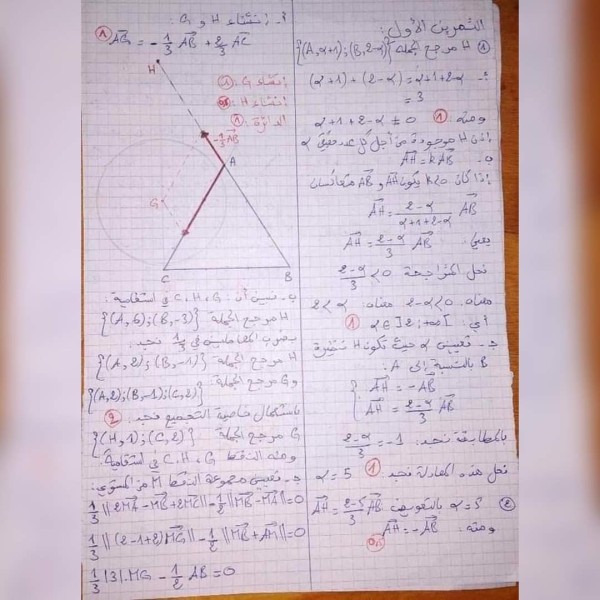 التمرين الأول:
① H مرجح الجملة {(A, α+1) ; (B, 2-α)}
أ- (α+1) + (2-α) = α+1+2-α
= 3
ومنه: α+1+2-α ≠ 0 ①
إذن H موجودة من أجل كل عدد حقيقي α
ب- AH = kAB
إذا كان k<0 يكون AH و AB متعاكسان
AH = (2-α)/(α+1+2-α) AB
يعني: AH = (2-α)/3 AB
نحل المتراجحة (2-α)/3 < 0
معناه 2-α<0 معناه 2<α
أي: α∈]2;+∞[ ①
ج- تعيين α حيث تكون H نظيرة
B بالنسبة إلى A:
{ AH = -AB
AH = (2-α)/3 AB
بالمطابقة نجد: -1 = (2-α)/3
نحل هذه المعادلة نجد ① α = 5
② α=5 بالتعويض AH = (2-5)/3 AB
ومنه: AH = -AB
0,5
أ- إنشاء H و G:
① AG = -1/3 AB + 2/3 AC
H
إنشاء G: ①
إنشاء H:
الدائرة: ①
-1/3 AB
A
G
C B
ب- نبين أن: C, H, G في استقامية:
H مرجح الجملة {(A, 6) ; (B, -3)}
بضرب المعاملين في 1/3 نجد:
H مرجح الجملة {(A, 2) ; (B, -1)}
و G مرجح الجملة: {(A,2);(B,-1);(C,2)}
باستعمال خاصية التجميع نجد: ②
G مرجح الجملة {(H,1) ; (C,2)}
ومنه النقط C, H, G في استقامية
ج- تعيين مجموعة النقط M من المستوي:
1/3 ||2MA - MB + 2MC|| - 1/2 ||MB - MA|| = 0
1/3 ||(2-1+2)MG|| - 1/2 ||MB + AM|| = 0
1/3 |3|.MG - 1/2 AB = 0